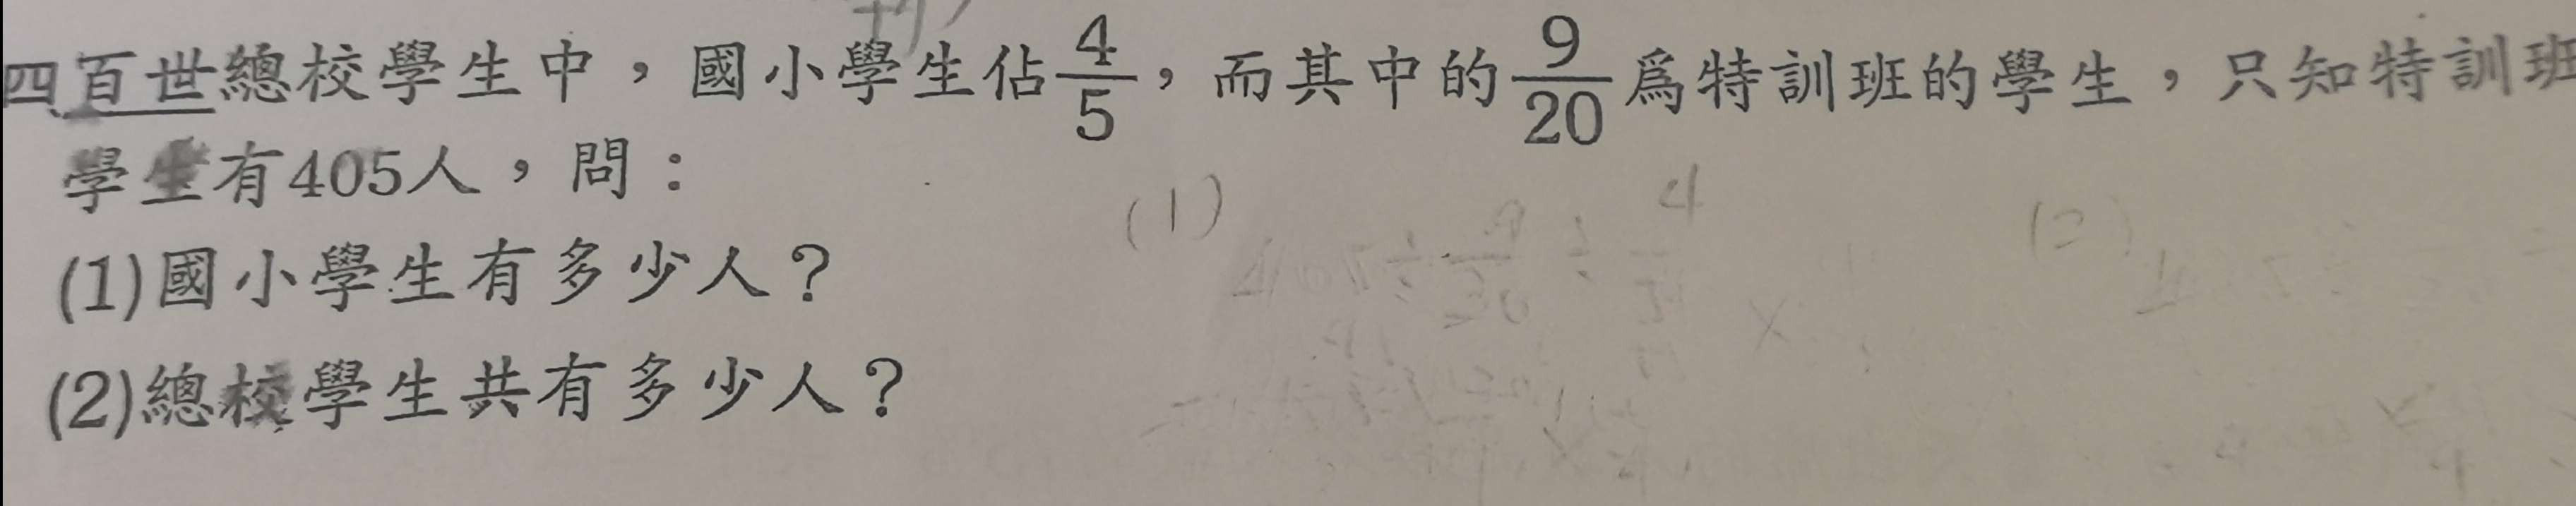 四百世總校學生中，國小學生佔4/5，而其中的9/20為特訓班的學生，只知特訓班
學生有405人，問：
(1)國小學生有多少人？
(2)總校學生共有多少人？
(1)
(2)